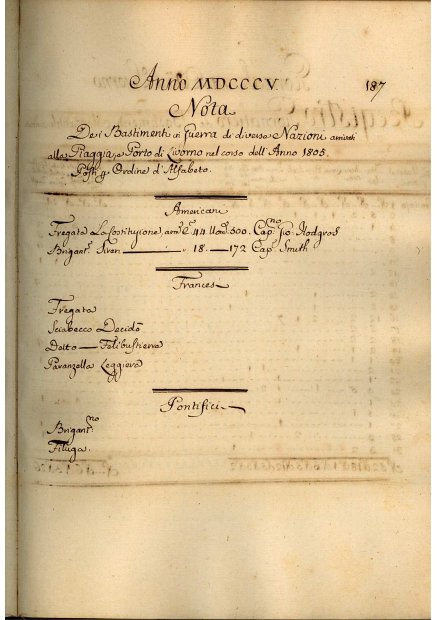 Anno MDCCCV.
187
Nota
De i Bastimenti di Guerra di diverse Nazioni arrivati
alla Piaggia, e Porto di Livorno nel corso dell'Anno 1805.
Posti p Ordine d'Alfabeto.
Americani
Fregata La Costituzione, arm.ta C. 44 Uod. 500. Cap.no Gio Rodgros
Brigant.o Siren 18. 172 Cap. Smith
Frances
Fregata
Sciabecco Decido
Detto Felibustiera
Paranzella Leggiera
Pontifici
Brigant.no
Filuga.